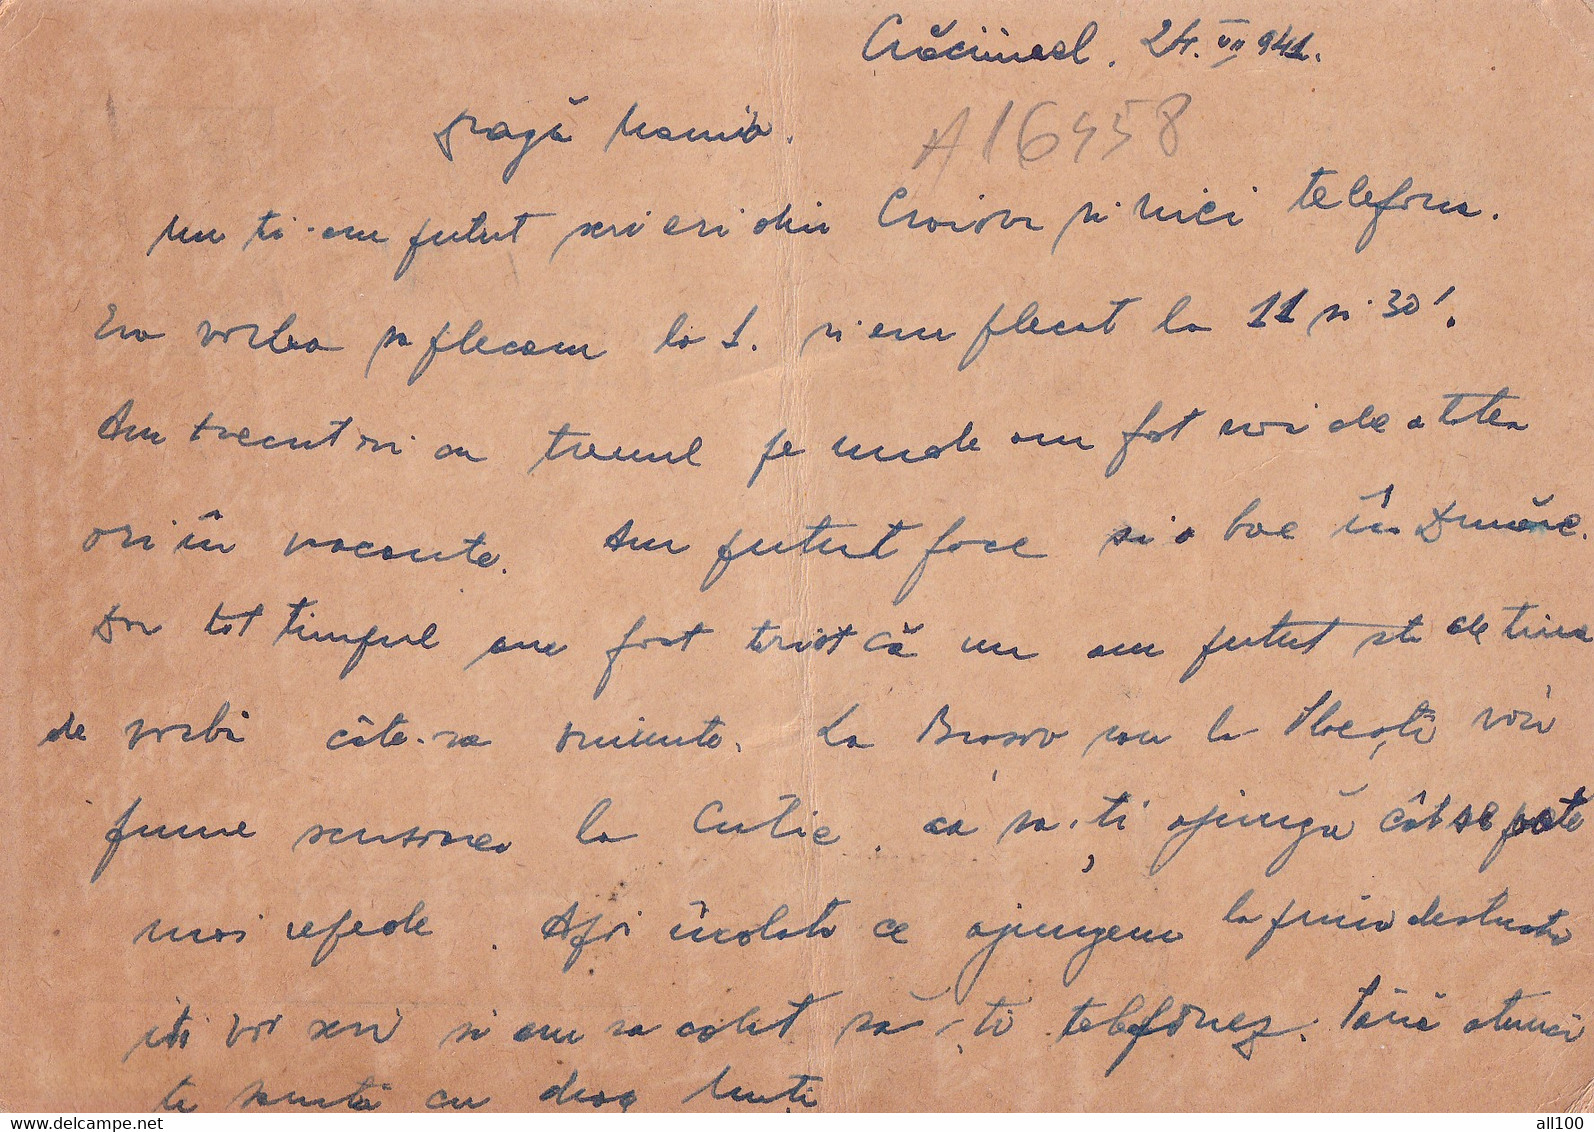 Crăciunel. 24. VII 941.
Dragă Mamia.
A 16458
Nu ti-am putut scri eri din Craiova si nici telefona.
Era vorba sa plecam la 1. si am plecat la 11 si 30'.
Am trecut ori cu trenul pe unde am fost noi de atatea
ori în vacante. Am putut face si o bae în Dunăre.
Dar tot timpul am fost trist că nu am putut sta de
de vorbi câte-va minute. La Brasov sau la Ploești voiu
pune scrisoarea la Cutie, ca sa-ți ajungă cât se poate
mai repede. Apoi îndata ce ajungem la prima destinatie
iti voi scri si am sa caut să-ti telefonez. Până atunci
te sarută cu drag
delcampe.net
all100